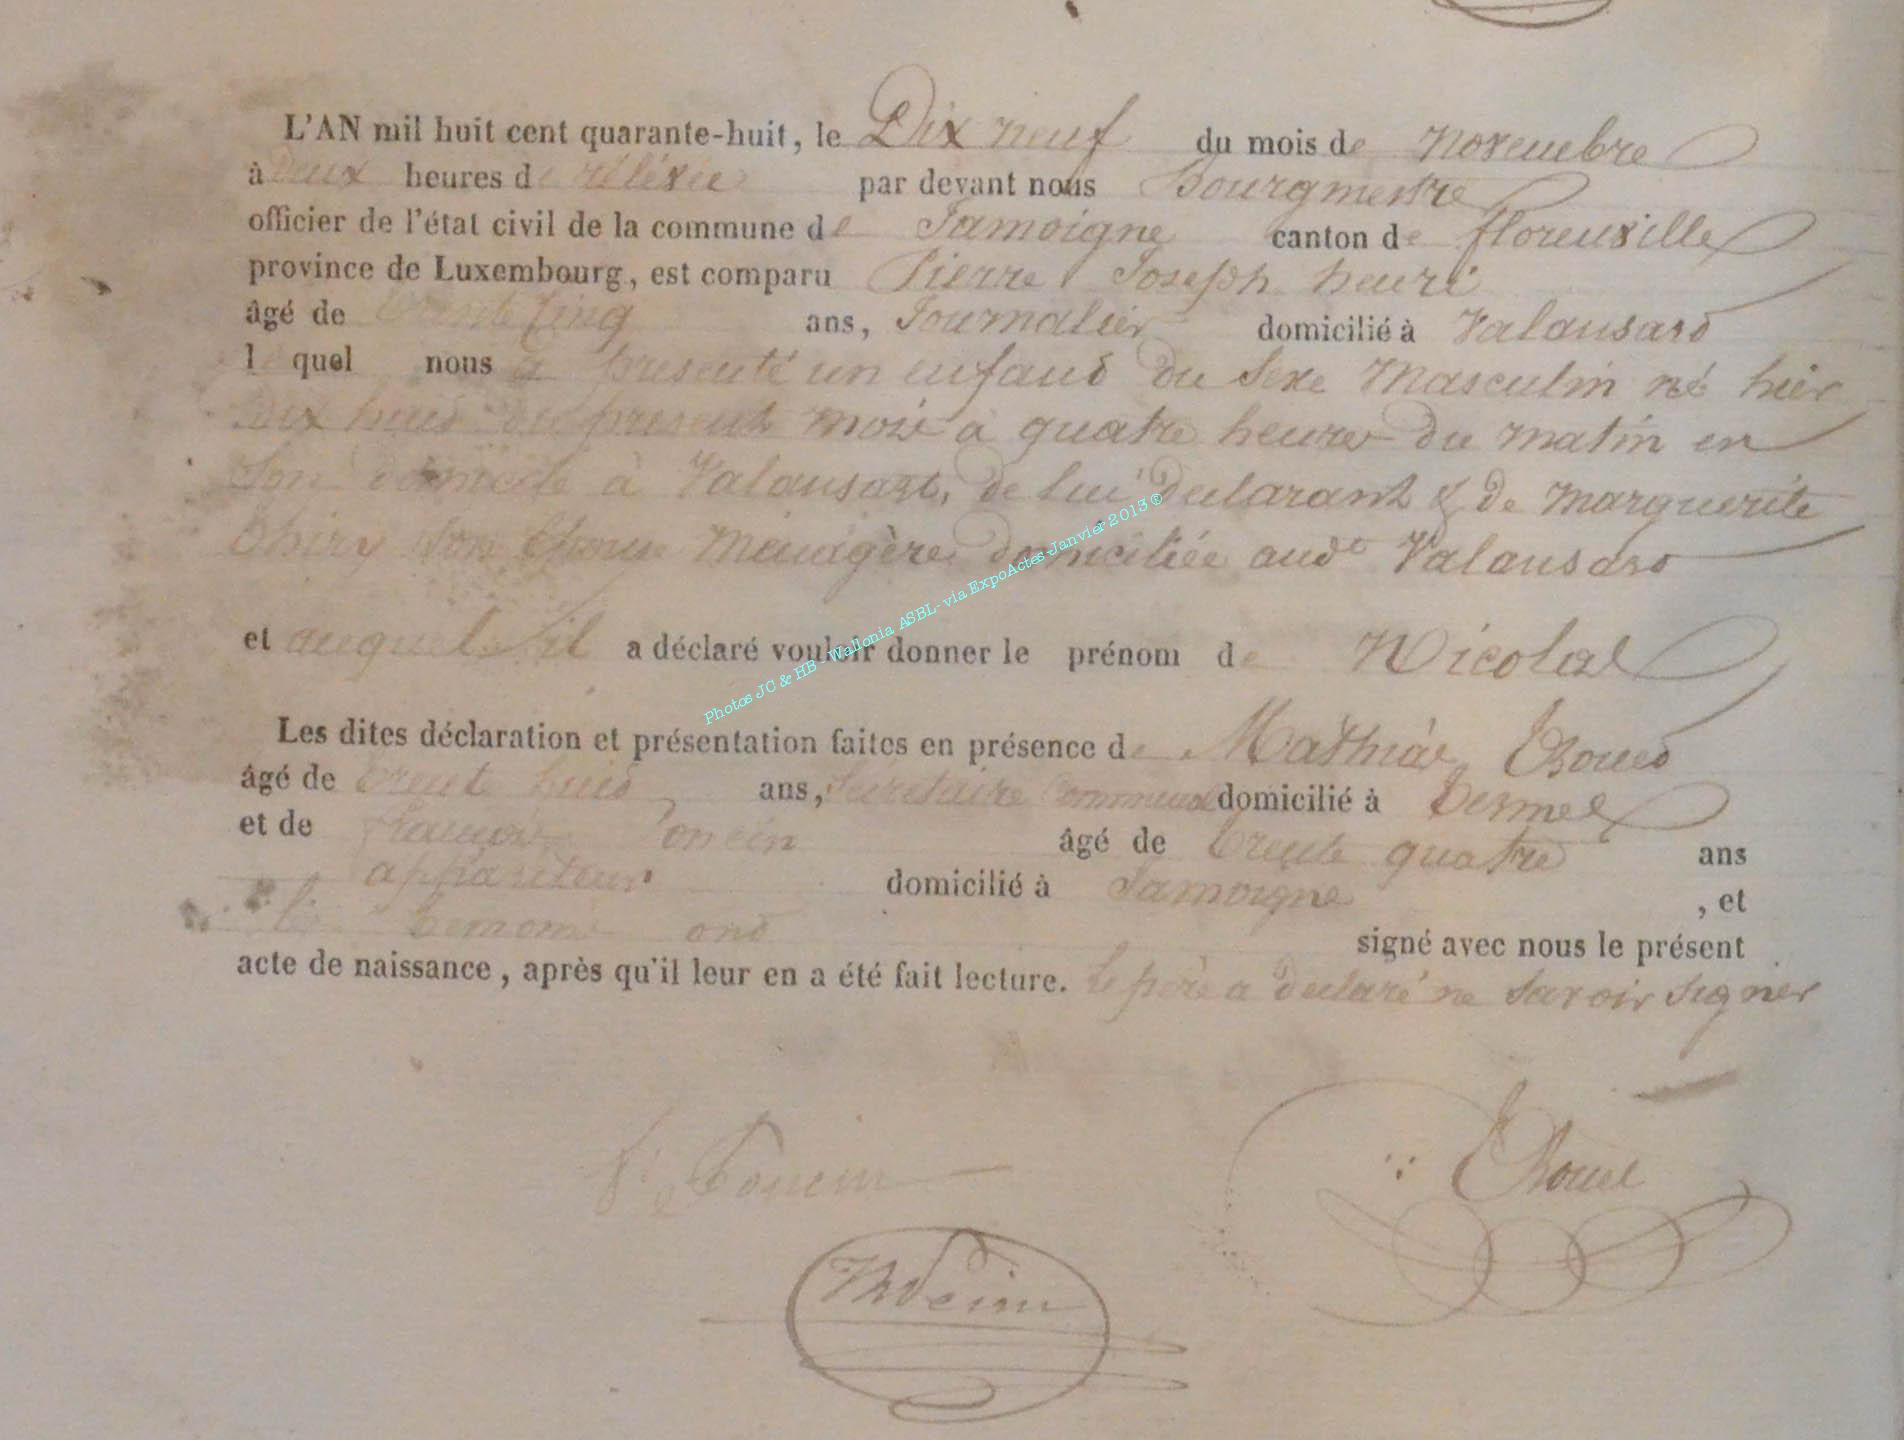 L'AN mil huit cent quarante-huit, le Dix neuf du mois de novembre
à Deux heures de rélévée par devant nous Bourgmestre
officier de l'état civil de la commune de Jamoigne canton de florenville
province de Luxembourg, est comparu Pierre Joseph henri
âgé de trente Cinq ans, Journalier domicilié à Valansard
lequel nous a présenté un enfand du Sexe Masculin né hier
Dix huid du present mois a quatre heures du matin en
Son domicile à Valansart, de lui declarant & de Marguerite
thiry Son Epouse Ménagère domiciliée aud.t Valansard
et auquel il a déclaré vouloir donner le prénom de Nicolas
Les dites déclaration et présentation faites en présence de Mathias
âgé de trente huid ans, Secretaire Communal domicilié à termes
et de françois Poncin âgé de trente quatre ans
appariteur domicilié à Jamoigne , et
les temoins ond signé avec nous le présent
acte de naissance, après qu'il leur en a été fait lecture. Le père a declaré ne savoir signer
Poncin
Photos JC & HB - Wallonia ASBL - via ExpoActes - Janvier 2013 ®